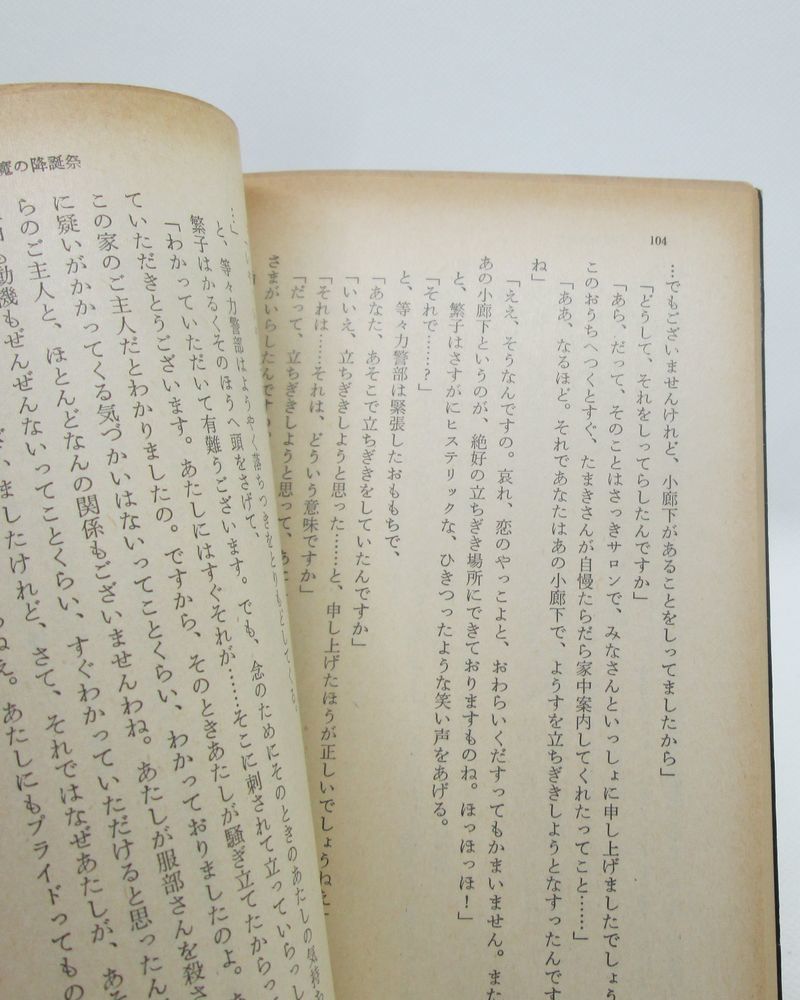 104
…でもございませんけれど、小廊下があることをしってましたから」
「どうして、それをしってらしたんですか」
「あら、だって、そのことはさっきサロンで、みなさんといっしょに申し上げましたでしょう
このおうちへつくとすぐ、たまきさんが自慢たらだら家中案内してくれたってこと……」
「ああ、なるほど。それであなたはあの小廊下で、ようすを立ちぎきしようとなすったんです
ね」
「ええ、そうなんですの。哀れ、恋のやっこよと、おわらいくだすってもかまいません。また
あの小廊下というのが、絶好の立ちぎき場所にできておりますものね。ほっほっほ！」
と、繁子はさすがにヒステリックな、ひきつったような笑い声をあげる。
「それで……？」
と、等々力警部は緊張したおももちで、
「あなた、あそこで立ちぎきをしていたんですか」
「いいえ、立ちぎきしようと思った……と、申し上げたほうが正しいでしょうねえ」
「それは……それは、どういう意味ですか」
「だって、立ちぎきしようと思って、あ
さまがいらしたんですの
魔の降誕祭
…」
と、等々力警部はようやく落ちつきをとりもどしてくる。
繁子はかるくそのほうへ頭をさげて、
「わかっていただいて有難うございます。でも、念のためにそのときのあたしの気持
ていただきとうございます。あたしにはすぐそれが……そこに刺されて立っていらっし
この家のご主人だとわかりましたの。ですから、そのときあたしが騒ぎ立てたからっ
に疑いがかかってくる気づかいはないってことくらい、わかっておりましたのよ。
らのご主人と、ほとんどなんの関係もございませんわね。あたしが服部さんを殺さ
動機もぜんぜんないってことくらい、すぐわかっていただけると思ったん
ましたけれど、さて、それではなぜあたしが、あそ
ねえ。あたしにもプライドってもの